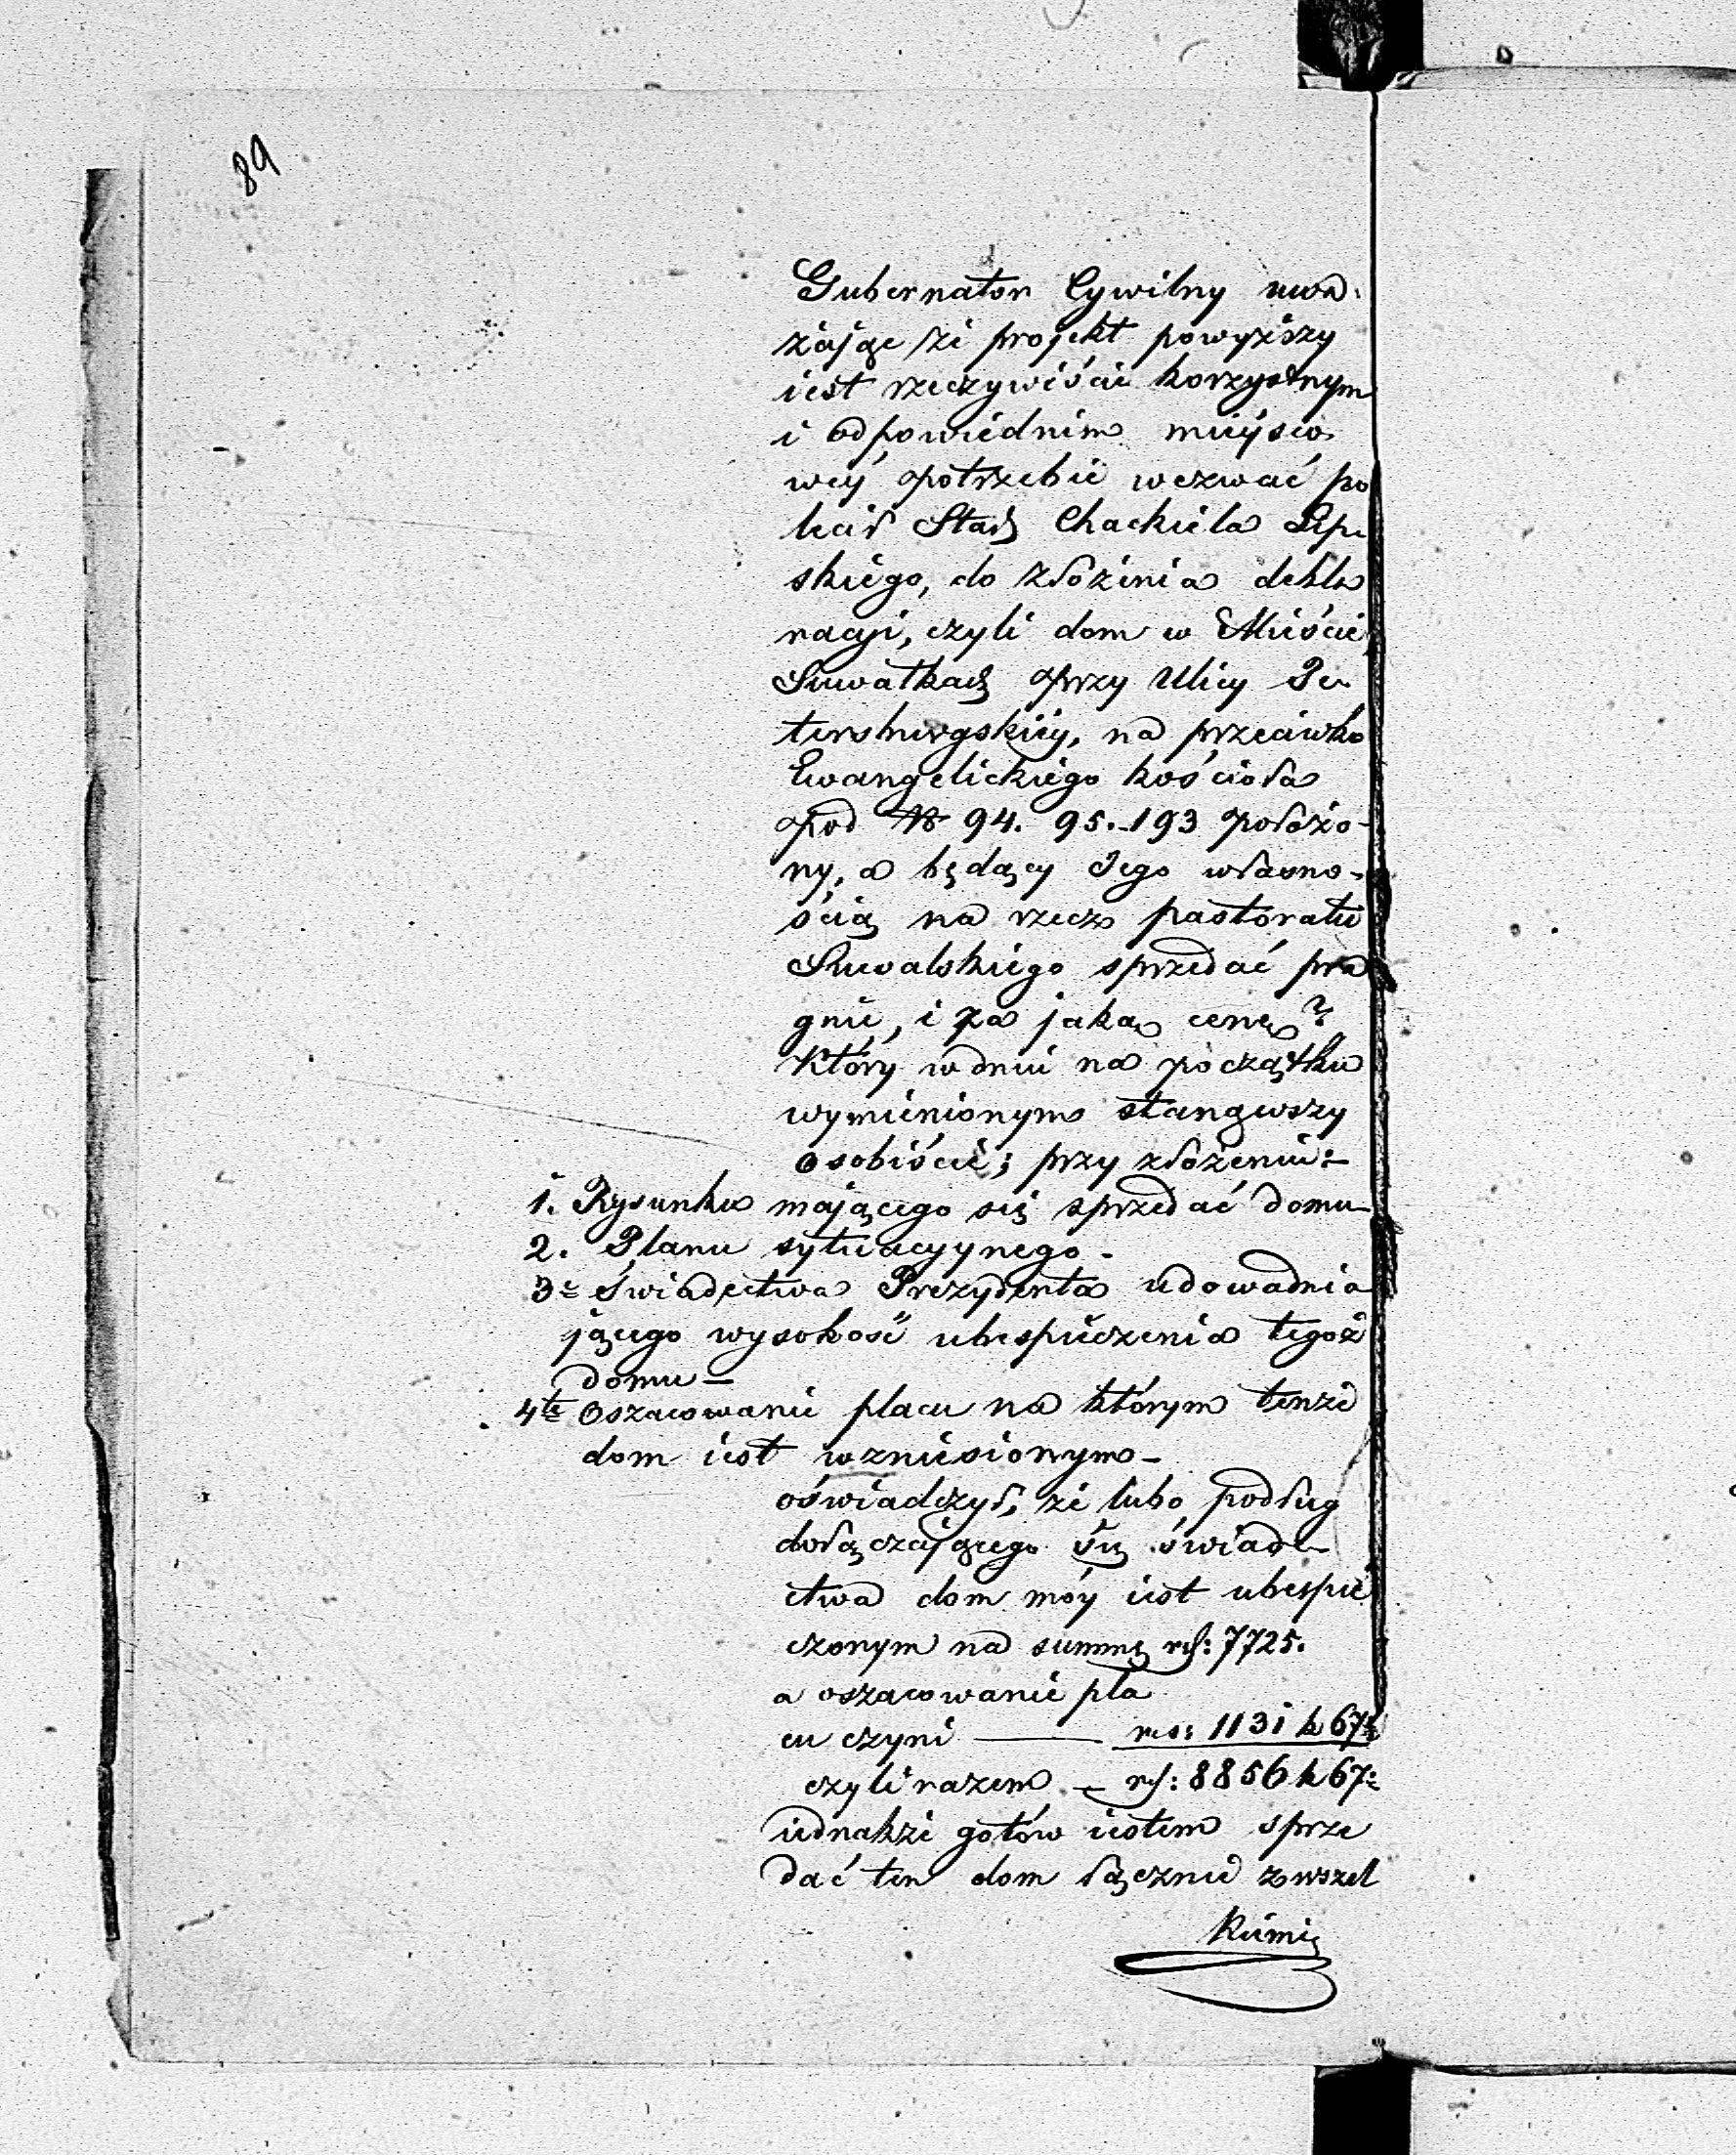 89
Gubernator Cywilny uwa-
żając że projekt powyższy
iest rzeczywiście korzystnym
i odpowiednim mieysco
wey potrzebie wezwać po
lecił Star: Chackiela Lip-
skiego, do złożenia dekla
racyi, czyli dom w Mieście
Suwałkach przy Ulicy Pe-
tersburgskiey, na przeciwko
Ewangelickiego kościoła
pod N 94. 95. 193 położo-
ny, a będący Jego własno-
ścią na rzecz pastoratu
Suwalskiego sprzedać pra
gnie, i za jaką cenę?
Który w dniu na początku
wymienionym stanąwszy
osobiście; przy złożeniu:
1. Rysunku mającego się sprzedać domu
2. Planu sytuacyynego.
3= Świadectwa Prezydenta udowadnia
jącego wysokość ubespieczenia tegoż
domu —
4te Oszacowanie placu na którym tenże
dom iest wzniesionym —
oświadczył, że lubo podług
dołączającego się świade-
ctwa dom móy iest ubespie
czonym na summę rs: 7725.
a oszacowanie pla
cu czyni — rs: 1131 k 67½
czyli razem — rs: 8856 k 67½
iednakże gotów iestem sprze
dać ten dom łącznie z wszel
kiemi